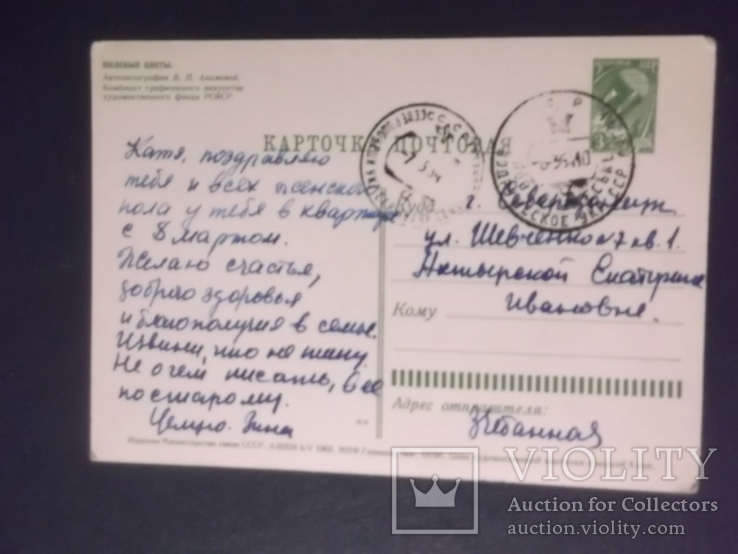 ПОЛЕВЫЕ ЦВЕТЫ.
Автолитография В. П. Акимовой.
Комбинат графического искусства
художественного фонда РСФСР.
КАРТОЧКА ПОЧТОВАЯ
Катя, поздравляю
тебя и всех женского
пола у тебя в квартире
с 8 мартом.
Желаю счастья,
доброго здоровья
и благополучия в семье.
Извини, что не пишу.
Не о чем писать, все
по старому.
Целую. Зина
Куда г. Северодонецк
ул. Шевченко 7 кв. 1.
Ахтырской Екатерине
Кому Ивановне.
Адрес отправителя:
Издание Министерства связи СССР.
VIOLITY
Auction for Collectors
auction.violity.com